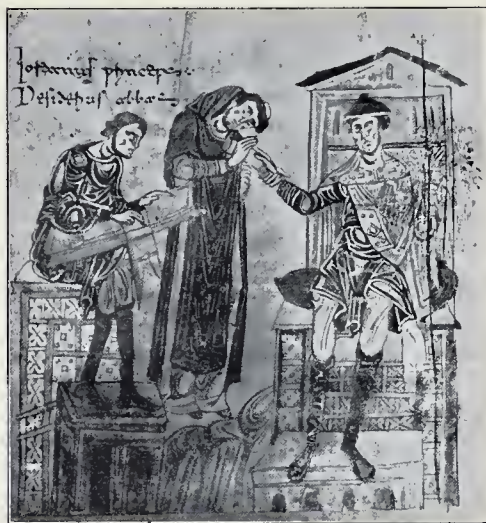 Iordanus princeps
Desiderius abbas